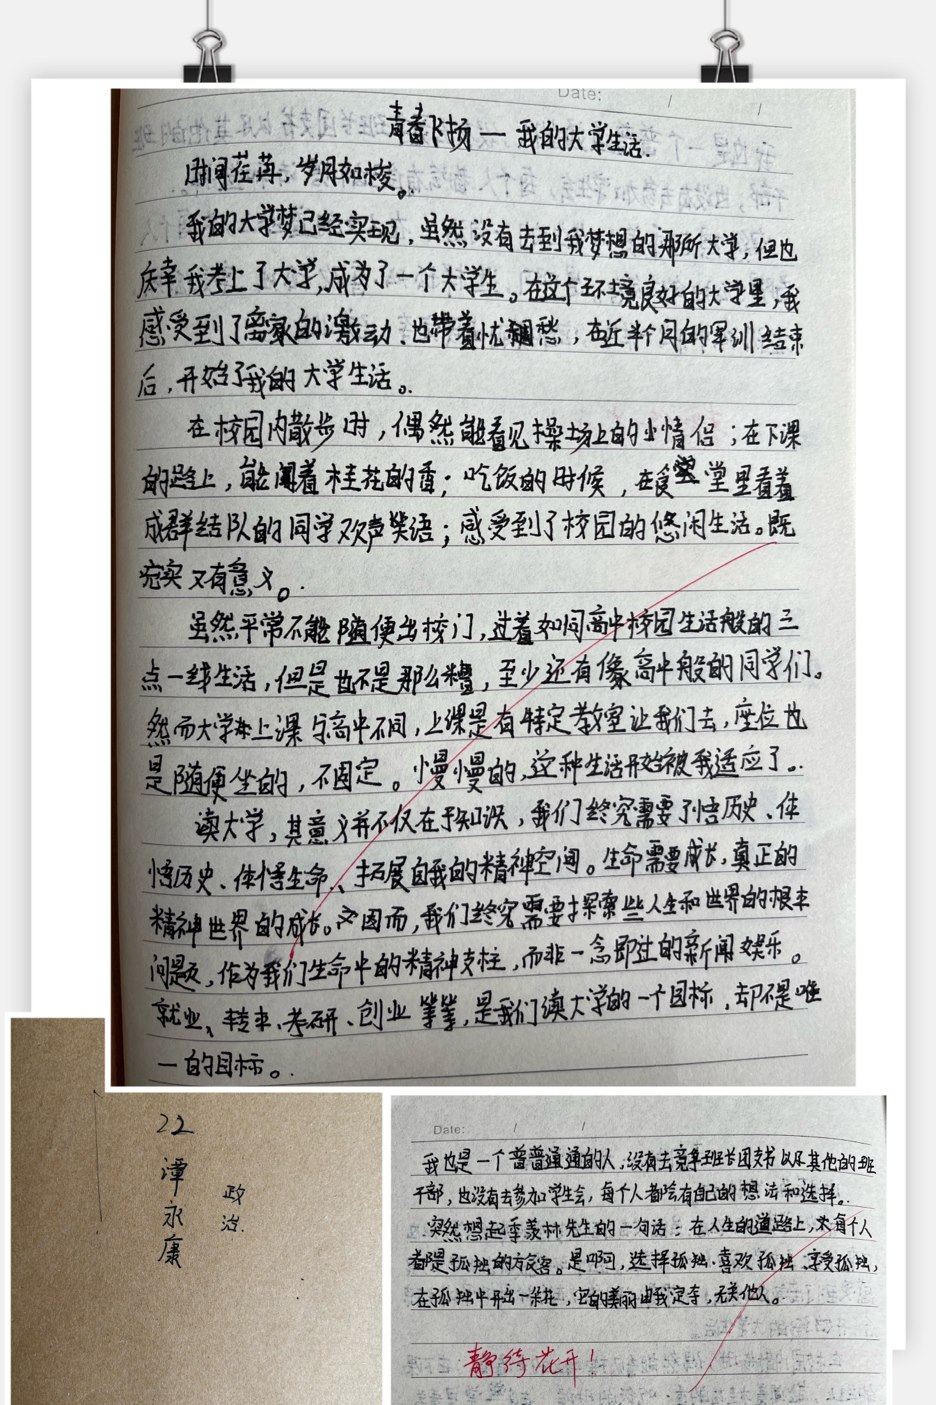 Date: / /
青春飞扬——我的大学生活.
时间荏苒，岁月如梭。
我的大学梦已经实现，虽然没有去到我梦想的那所大学，但也
庆幸我考上了大学,成为了一个大学生。在这个环境良好的大学里，我
感受到了离家的激动、也带着忧愁；在近半个月的军训结束
后，开始了我的大学生活。
在校园内散步时，偶然能看见操场上的小情侣；在下课
的路上，能闻着桂花的香；吃饭的时候，在食堂里看着
成群结队的同学欢声笑语；感受到了校园的悠闲生活。既
充实又有意义。
虽然平常不能随便出校门，过着如同高中校园生活般的三
点一线生活，但是也不是那么糟，至少还有像高中般的同学们。
然而大学上课与高中不同，上课是有特定教室让我们去，座位也
是随便坐的，不固定。慢慢的，这种生活开始被我适应了。
读大学，其意义并不仅在于知识，我们终究需要了悟历史、体
悟历史、体悟生命、拓展自我的精神空间。生命需要成长，真正的
精神世界的成长。因而，我们终究需要探索些人生和世界的根本
问题，作为我们生命中的精神支柱，而非一念即过的新闻娱乐。
就业、转本、考研、创业等等，是我们读大学的一个目标，却不是唯
一的目标。
22
谭永康
政治
Date: / /
我也是一个普普通通的人，没有去竞争班长团支书以及其他的班
干部，也没有去参加学生会，每个人都会有自己的想法和选择。
突然想起季羡林先生的一句话：在人生的道路上，每个人
都是孤独的旅客。是啊，选择孤独、喜欢孤独、享受孤独，
在孤独中开出一朵花，它的美丽由我定夺，无关他人。
静待花开！